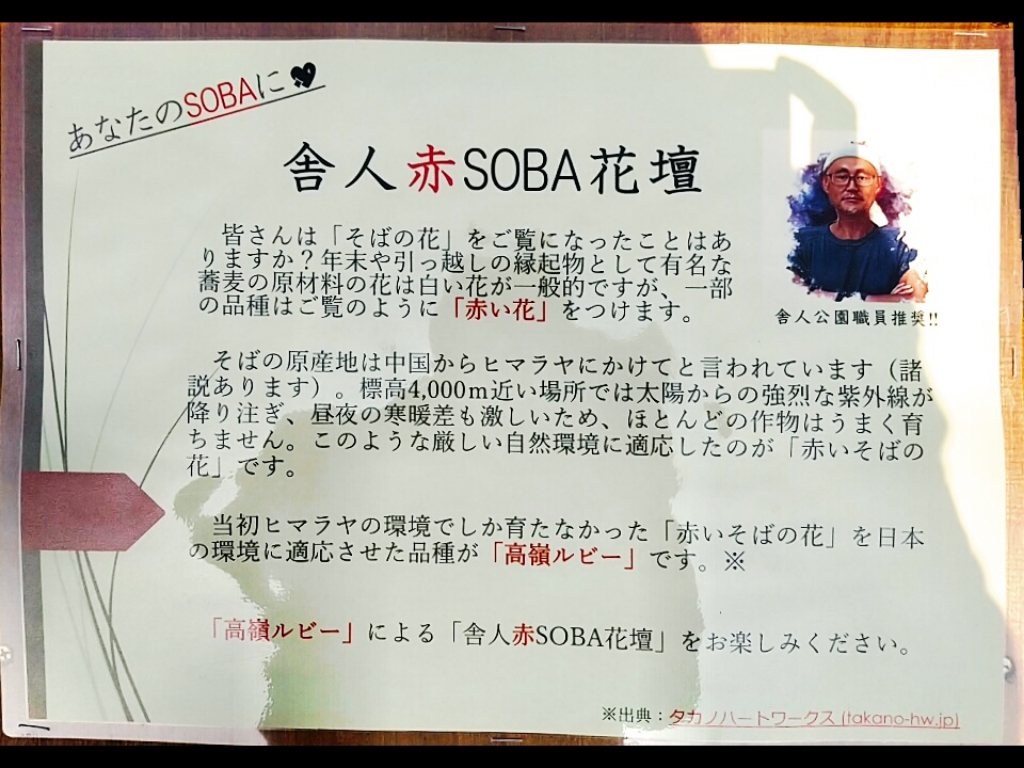 あなたのSOBAに♥
舎人赤SOBA花壇
皆さんは「そばの花」をご覧になったことはあ
りますか？年末や引っ越しの縁起物として有名な
蕎麦の原材料の花は白い花が一般的ですが、一部
の品種はご覧のように「赤い花」をつけます。
舎人公園職員推奨!!
そばの原産地は中国からヒマラヤにかけてと言われています（諸
説あります）。標高4,000m近い場所では太陽からの強烈な紫外線が
降り注ぎ、昼夜の寒暖差も激しいため、ほとんどの作物はうまく育
ちません。このような厳しい自然環境に適応したのが「赤いそばの
花」です。
当初ヒマラヤの環境でしか育たなかった「赤いそばの花」を日本
の環境に適応させた品種が「高嶺ルビー」です。※
「高嶺ルビー」による「舎人赤SOBA花壇」をお楽しみください。
※出典：タカノハートワークス (takano-hw.jp)